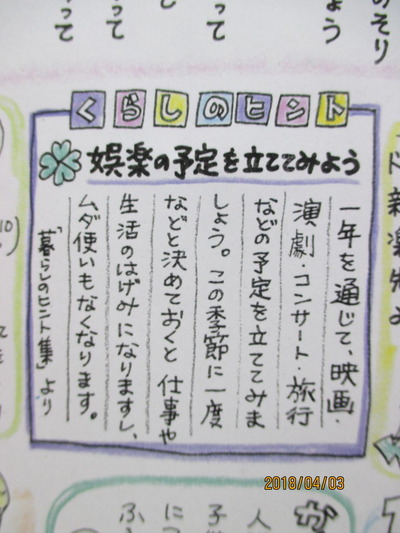 のそり
しょう
って
って
くらしのヒント
娯楽の予定を立ててみよう
一年を通じて、映画・
演劇・コンサート・旅行
などの予定を立ててみま
しょう。この季節に一度
などと決めておくと仕事や
生活のはげみになりますし、
ムダ使いもなくなります。
「暮らしのヒント集」より
2018/04/03